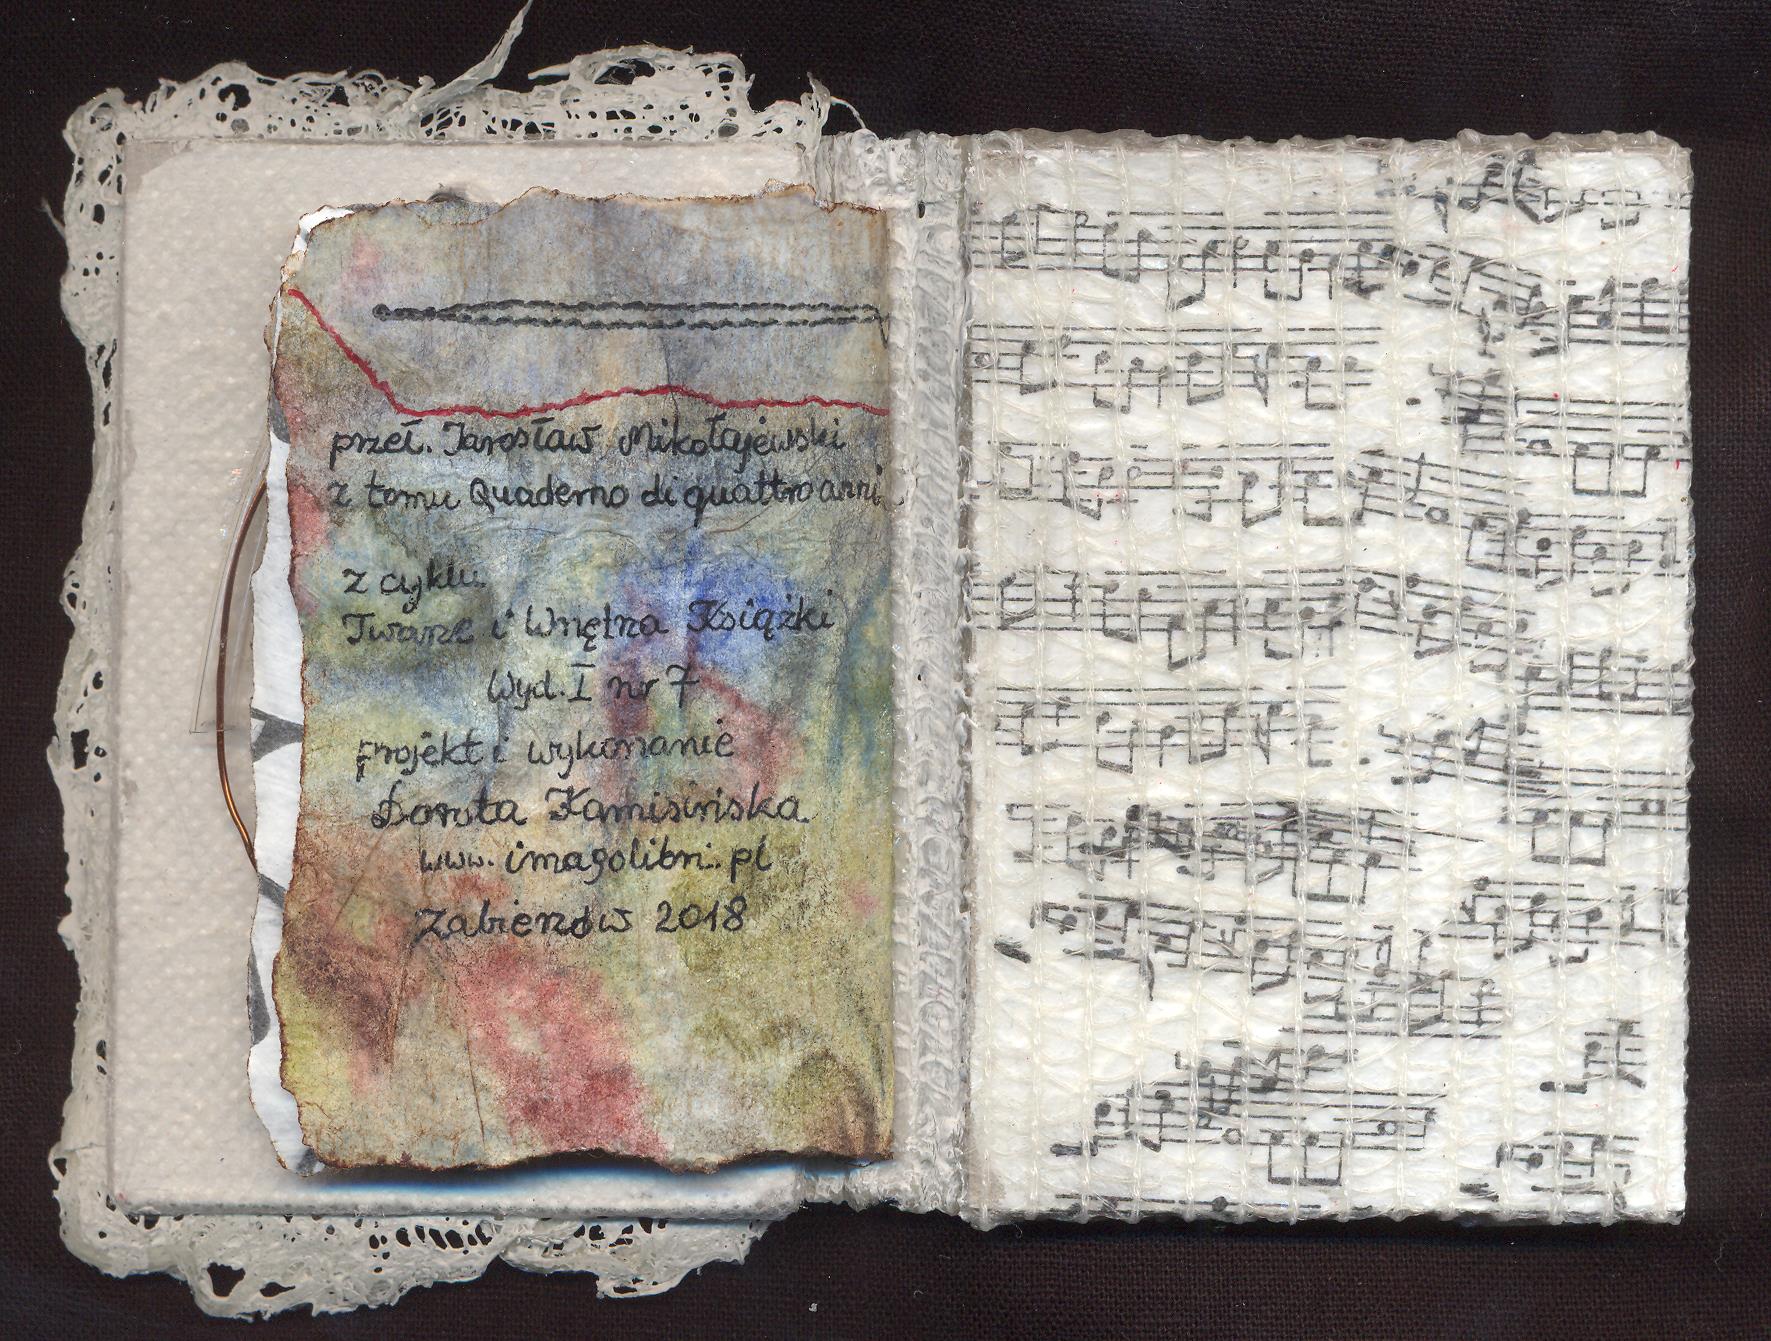 przeł. Jarosław Mikołajewski
z tomu Quaderno di quattro anni
z cyklu
Twarze i Wnętrza Książki
Wyd. I nr 7
Projekt i wykonanie
Dorota Kamisińska
www.imagolibri.pl
Zabierzów 2018